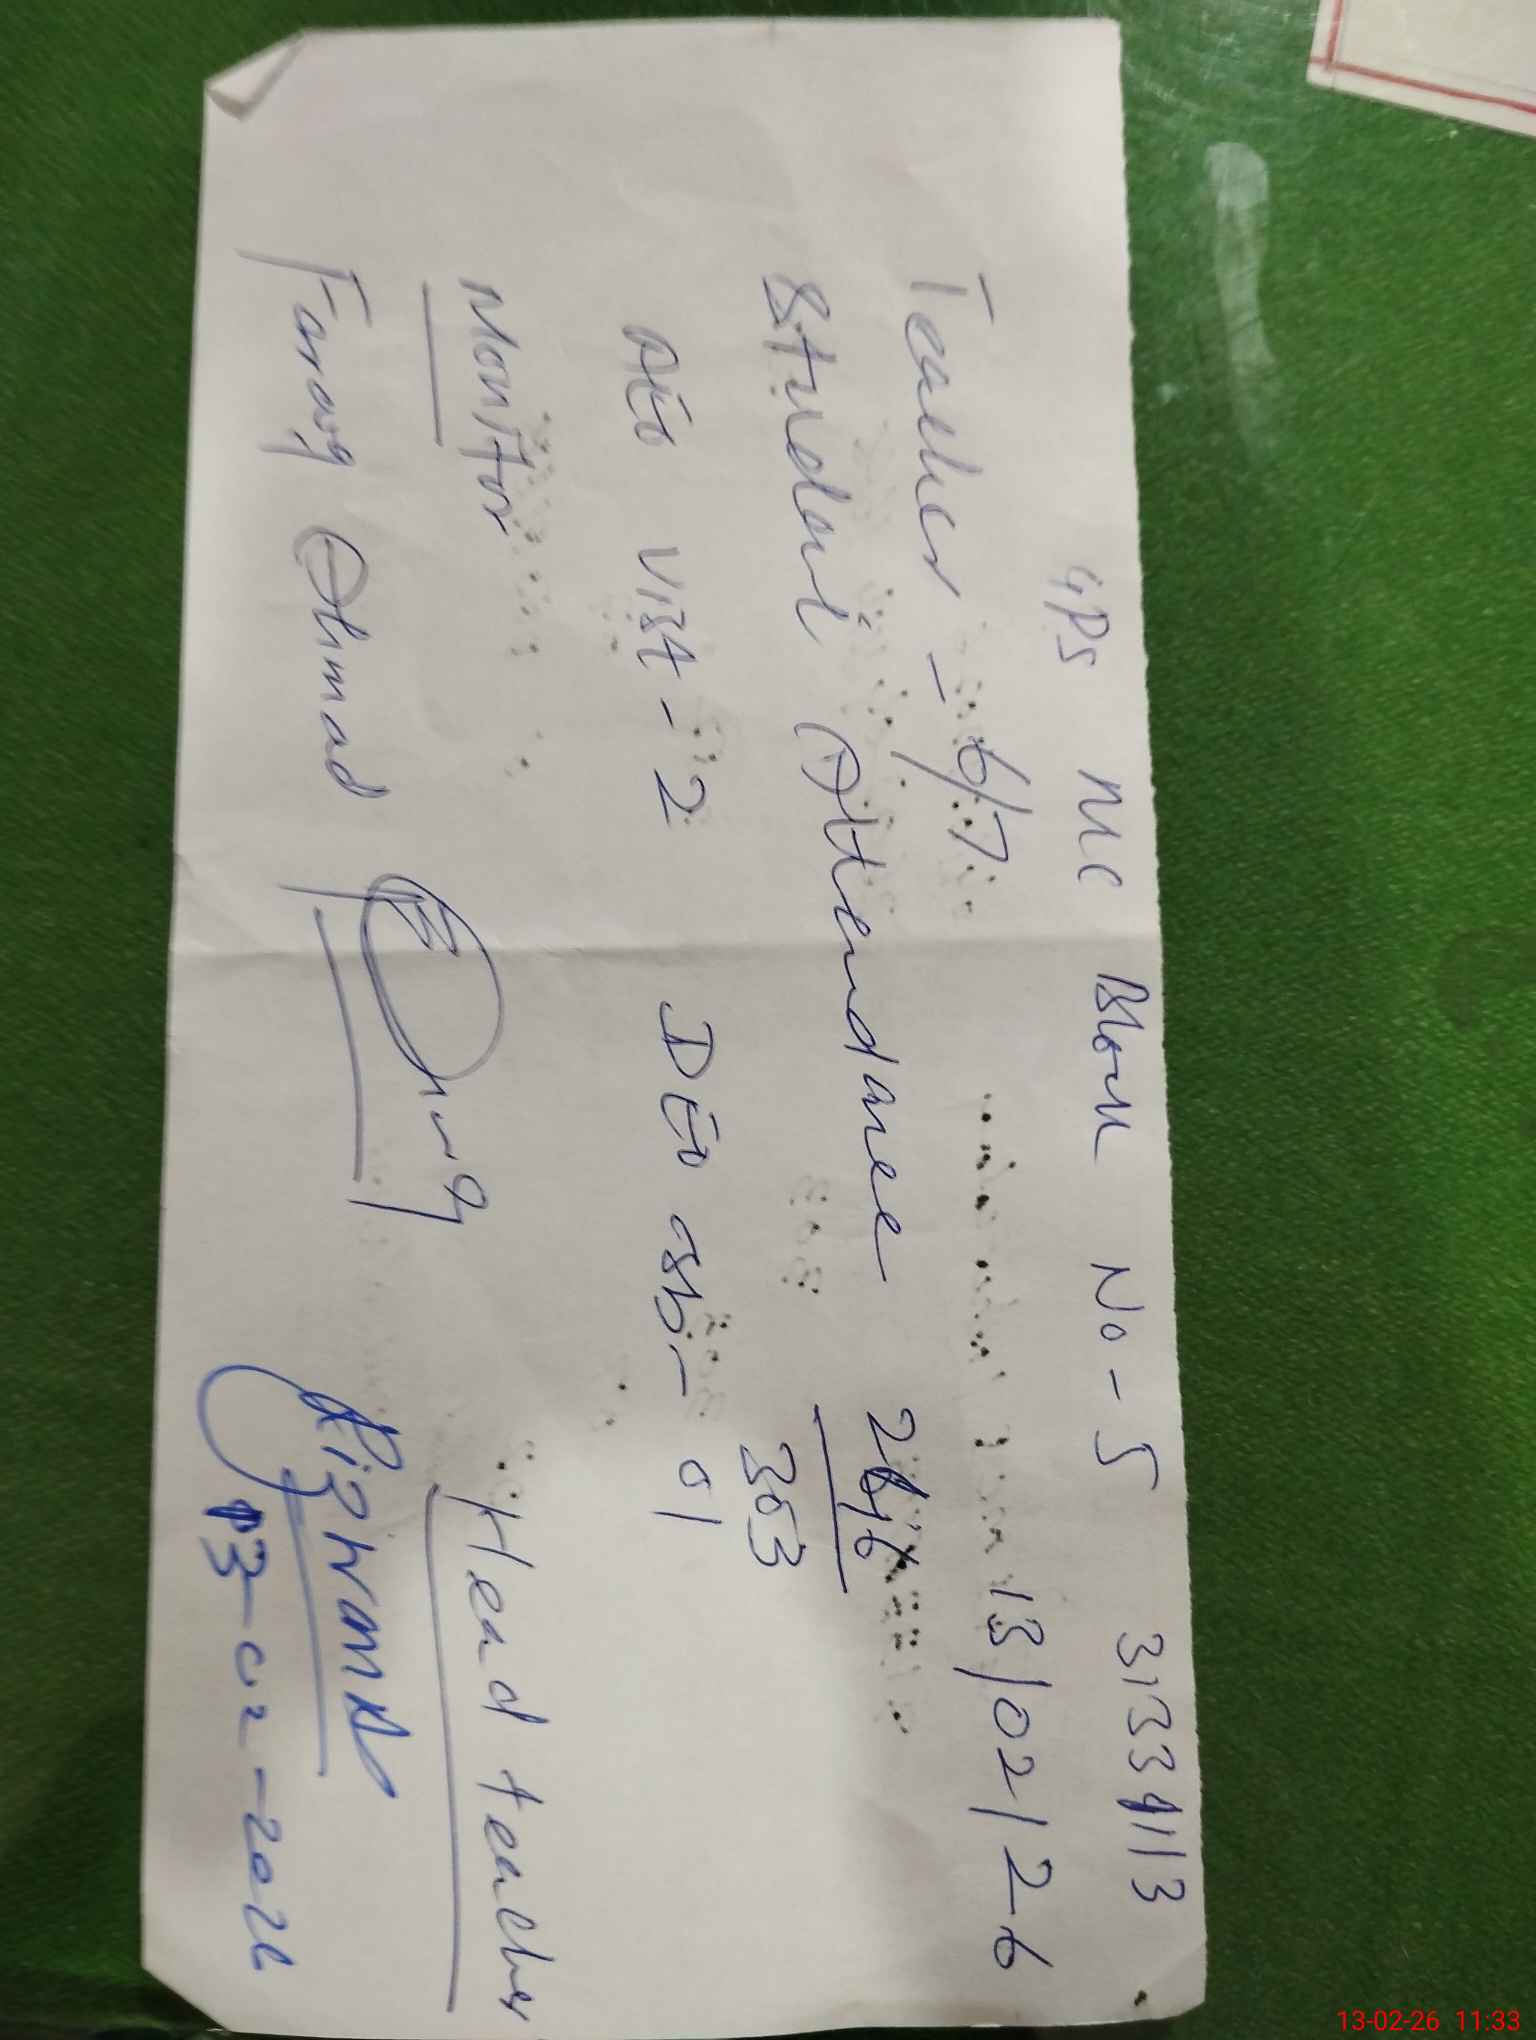 GPS MC Block No-5 31334113
13/02/26
Teacher - 6/7
Student Attendance 246
303
AEO Visit - 2 DEO obs - 01
Monitor Head teacher
Farooq Ahmad
13-02-2026
13-02-26 11:33